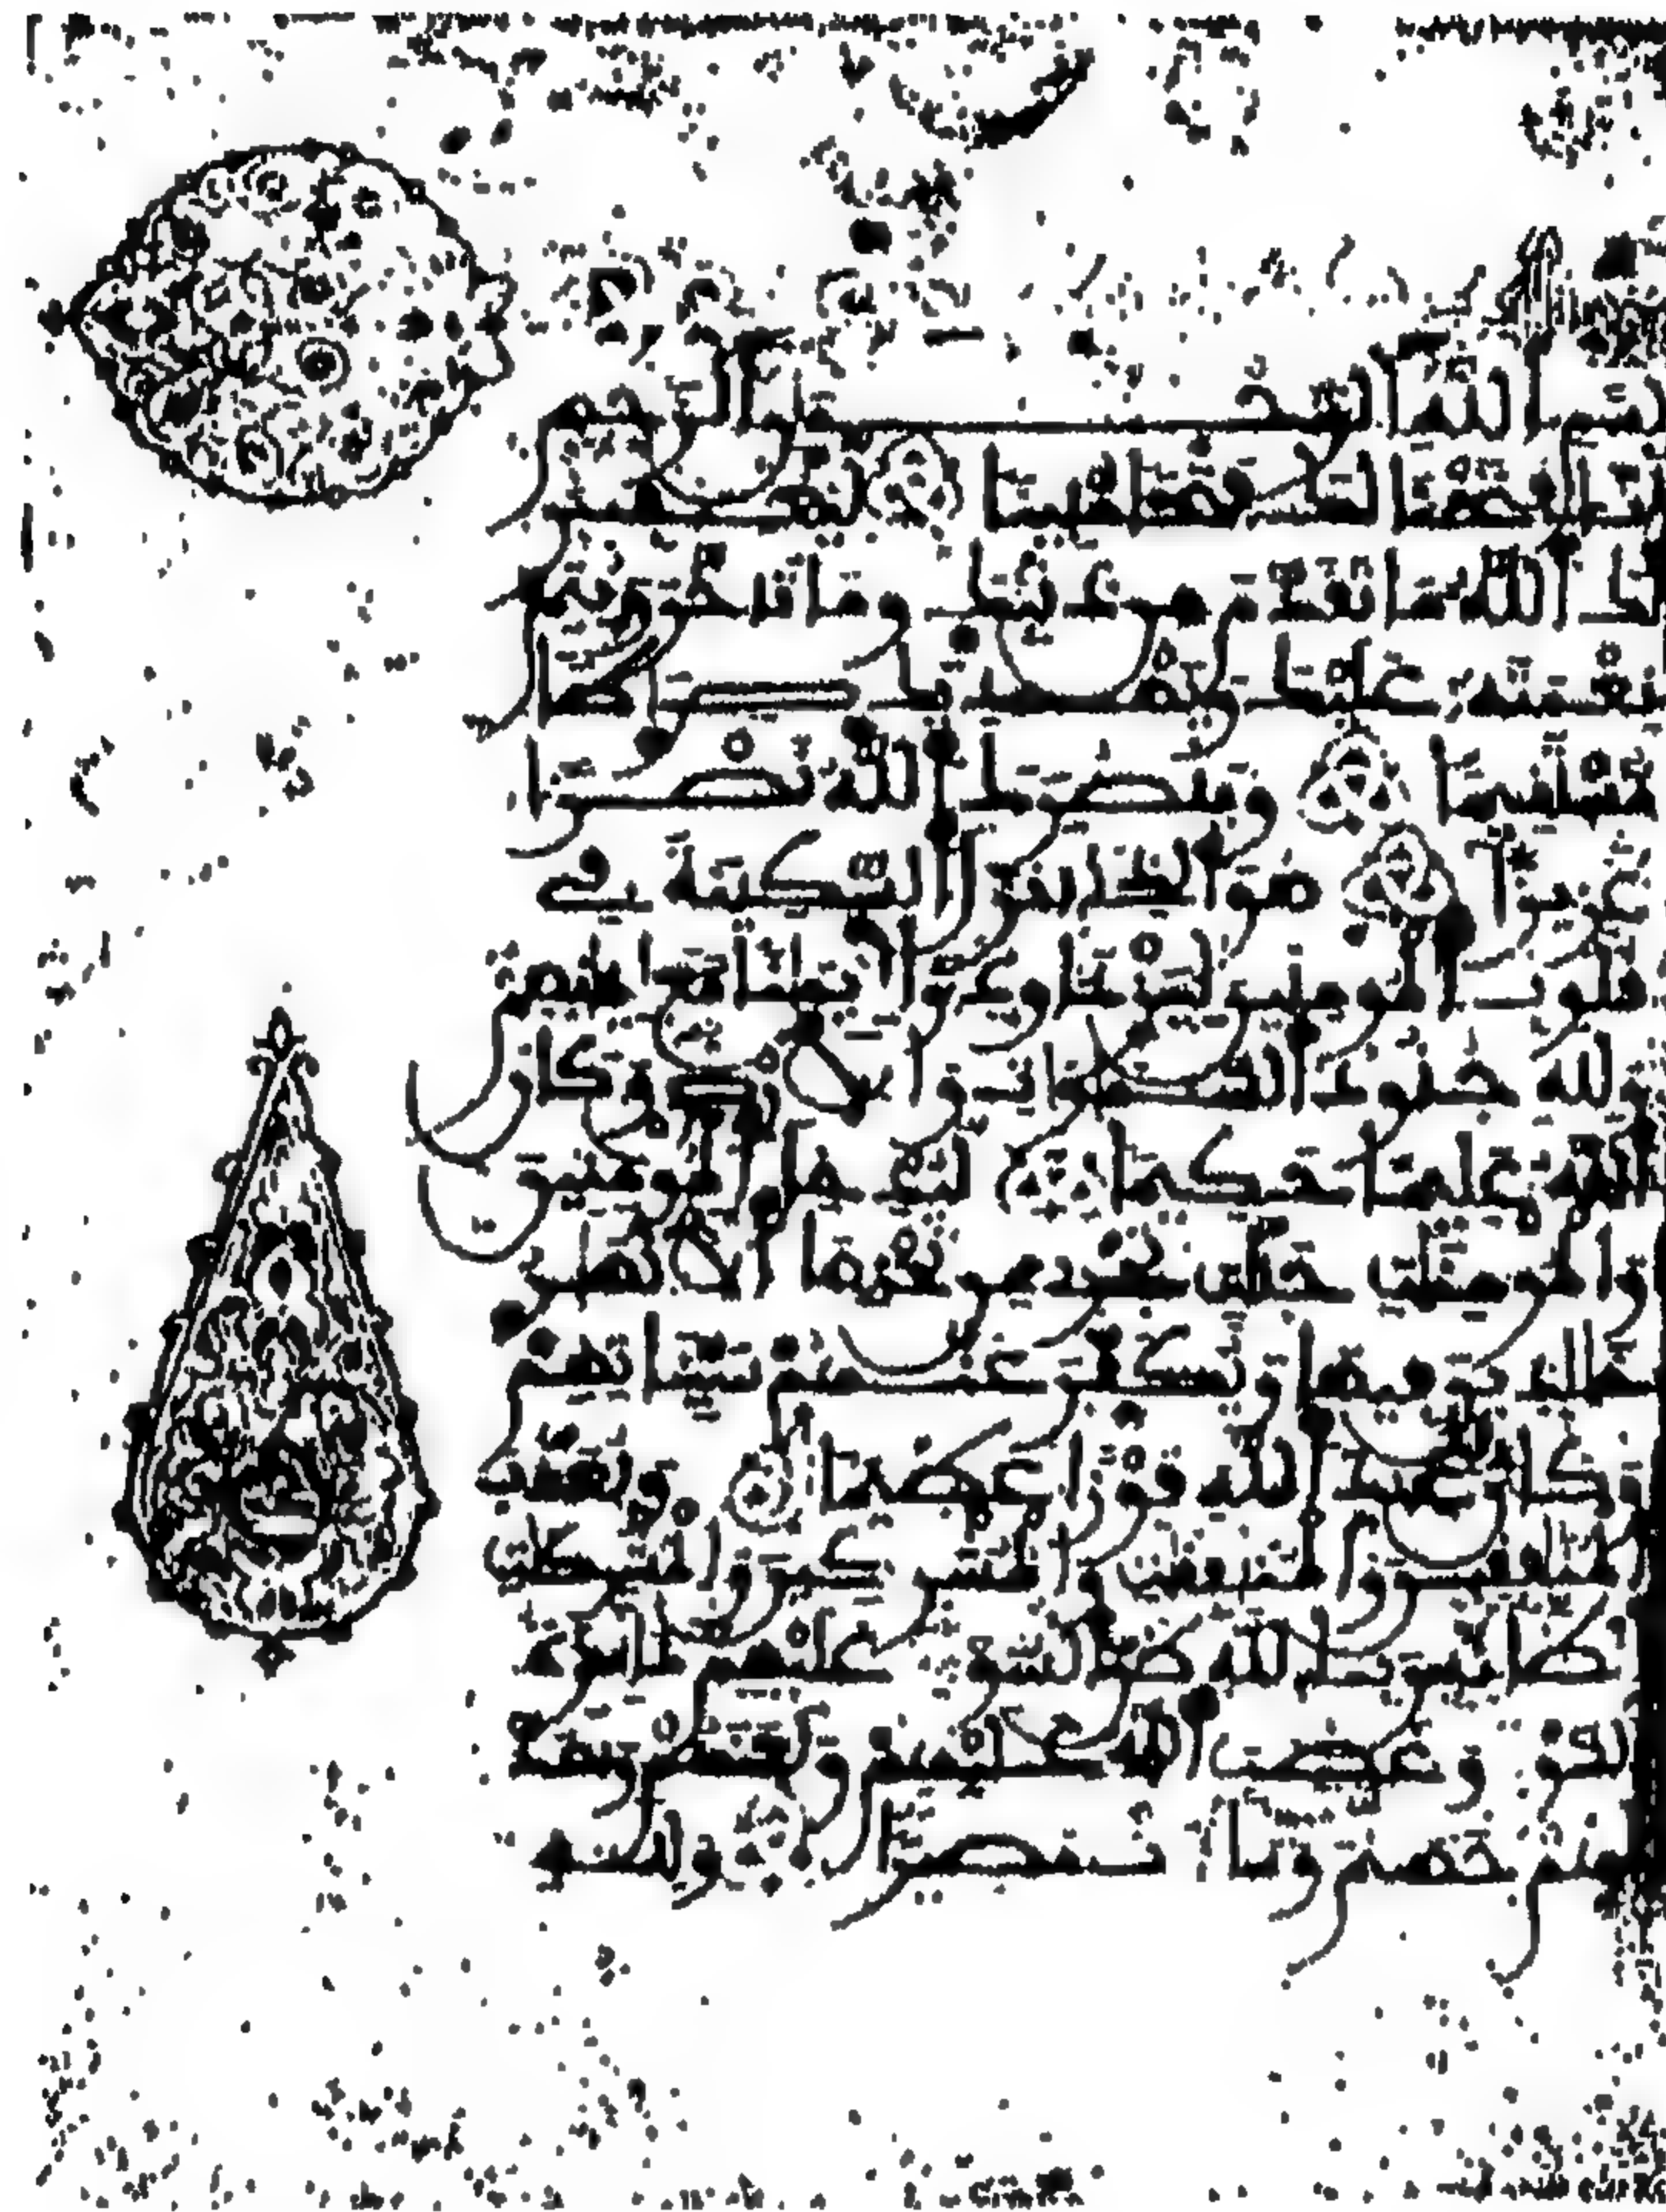 بسم الله الرحمن الرحيم
انا فتحنا لك فتحا مبينا ليغفر
لك الله ما تقدم من ذنبك وما تاخر ويتم
نعمته عليك ويهديك صرطا
مستقيما وينصرك الله نصرا
عزيزا هو الذي انزل السكينة في
قلوب المومنين ليزدادوا ايمنا مع ايمنهم
ولله جنود السموات والارض وكان
الله عليما حكيما ليدخل المومنين
والمومنت جنت تجري من تحتها الانهر
خلدين فيها ويكفر عنهم سياتهم
وكان عند الله فوزا عظيما ويعذب
المنفقين والمنفقت والمشركين والمشركت
الظانين بالله ظن السوء عليهم دائرة
السوء وغضب الله عليهم ولعنهم واعد
لهم جهنم وساءت مصيرا ولله